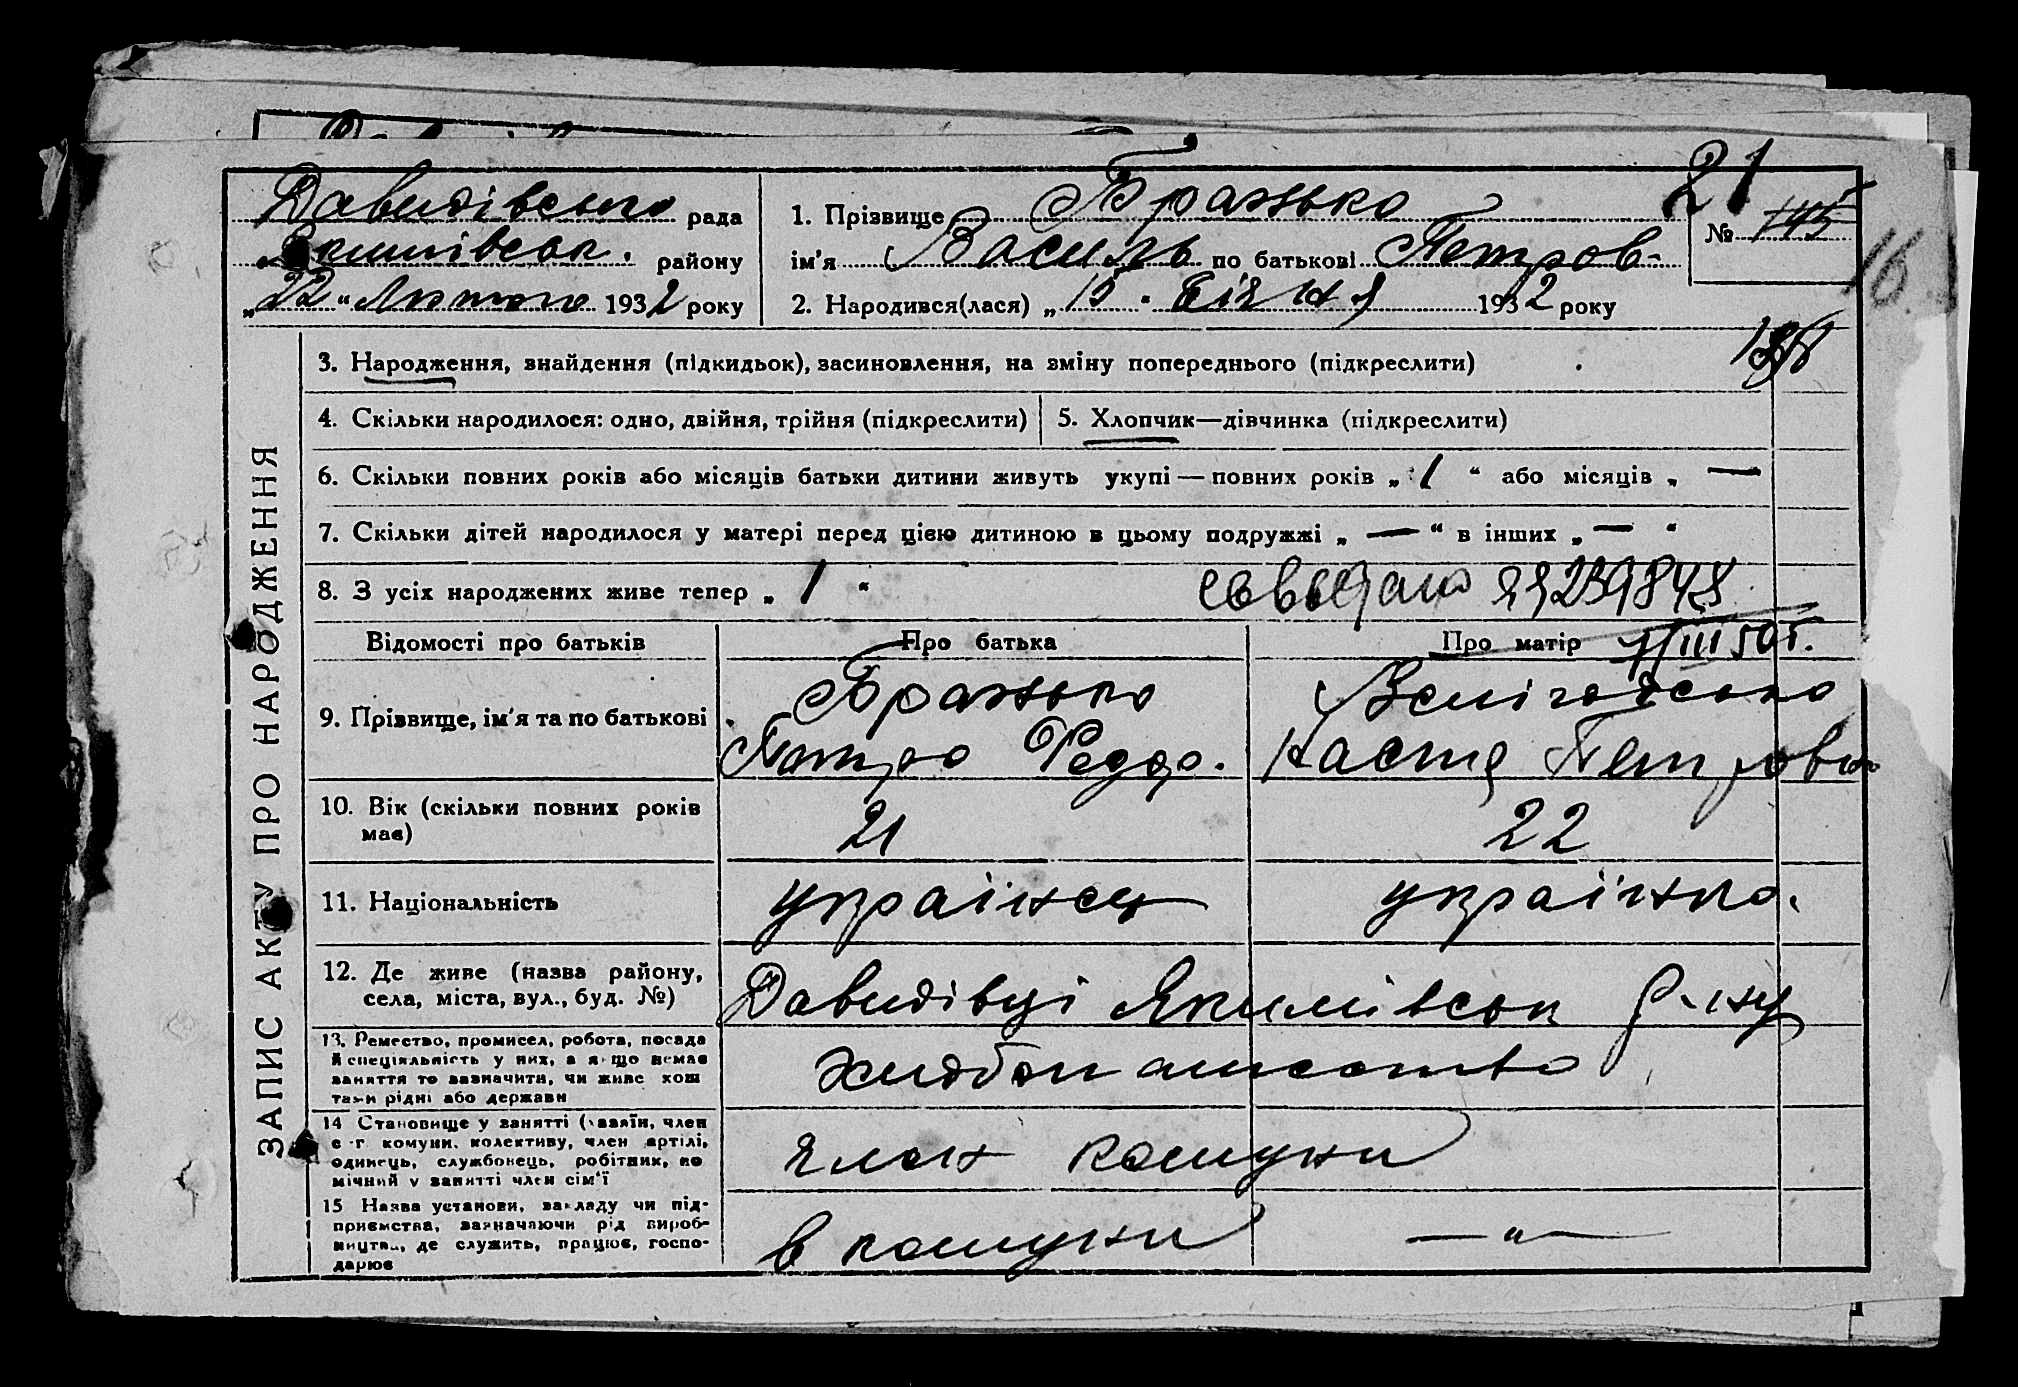 Давидівська рада
Якимівськ. району
„22“ Лютого 1932 року
1. Прізвище Бражько
ім'я Василь по батькові Петров.
2. Народився(лася) „15“ Січня 1932 року
21
№ 145
16
ЗАПИС АКТУ ПРО НАРОДЖЕННЯ
3. Народження, знайдення (підкидьок), засиновлення, на зміну попереднього (підкреслити)
4. Скільки народилося: одно, двійня, трійня (підкреслити)
5. Хлопчик—дівчинка (підкреслити)
6. Скільки повних років або місяців батьки дитини живуть укупі — повних років „1“ або місяців „ —
7. Скільки дітей народилося у матері перед цією дитиною в цьому подружжі „ — “ в інших „ — “
8. З усіх народжених живе тепер „ 1 “
239848
Відомості про батьків
Про батька
Про матір
III 50 г.
9. Прізвище, ім'я та по батькові
Бражько
Петро Федор.
Настя Петровна
10. Вік (скільки повних років має)
21
22
11. Національність
українец
українка.
12. Де живе (назва району, села, міста, вул., буд. №)
Давидівці Якимівськ р-ну
13. Ремество, промисел, робота, посада й спеціяльність у них, а якщо немає заняття то зазначити, чи живе коштами рідні або держави
14 Становище у занятті (хазяїн, член с-г. комуни, колективу, член артілі, одинець, службовець, робітник, помічний у занятті член сім'ї
член комуни
15 Назва установи, закладу чи підприємства, зазначаючи рід виробництва, де служить, працює, господарює
в комуни
— „ —